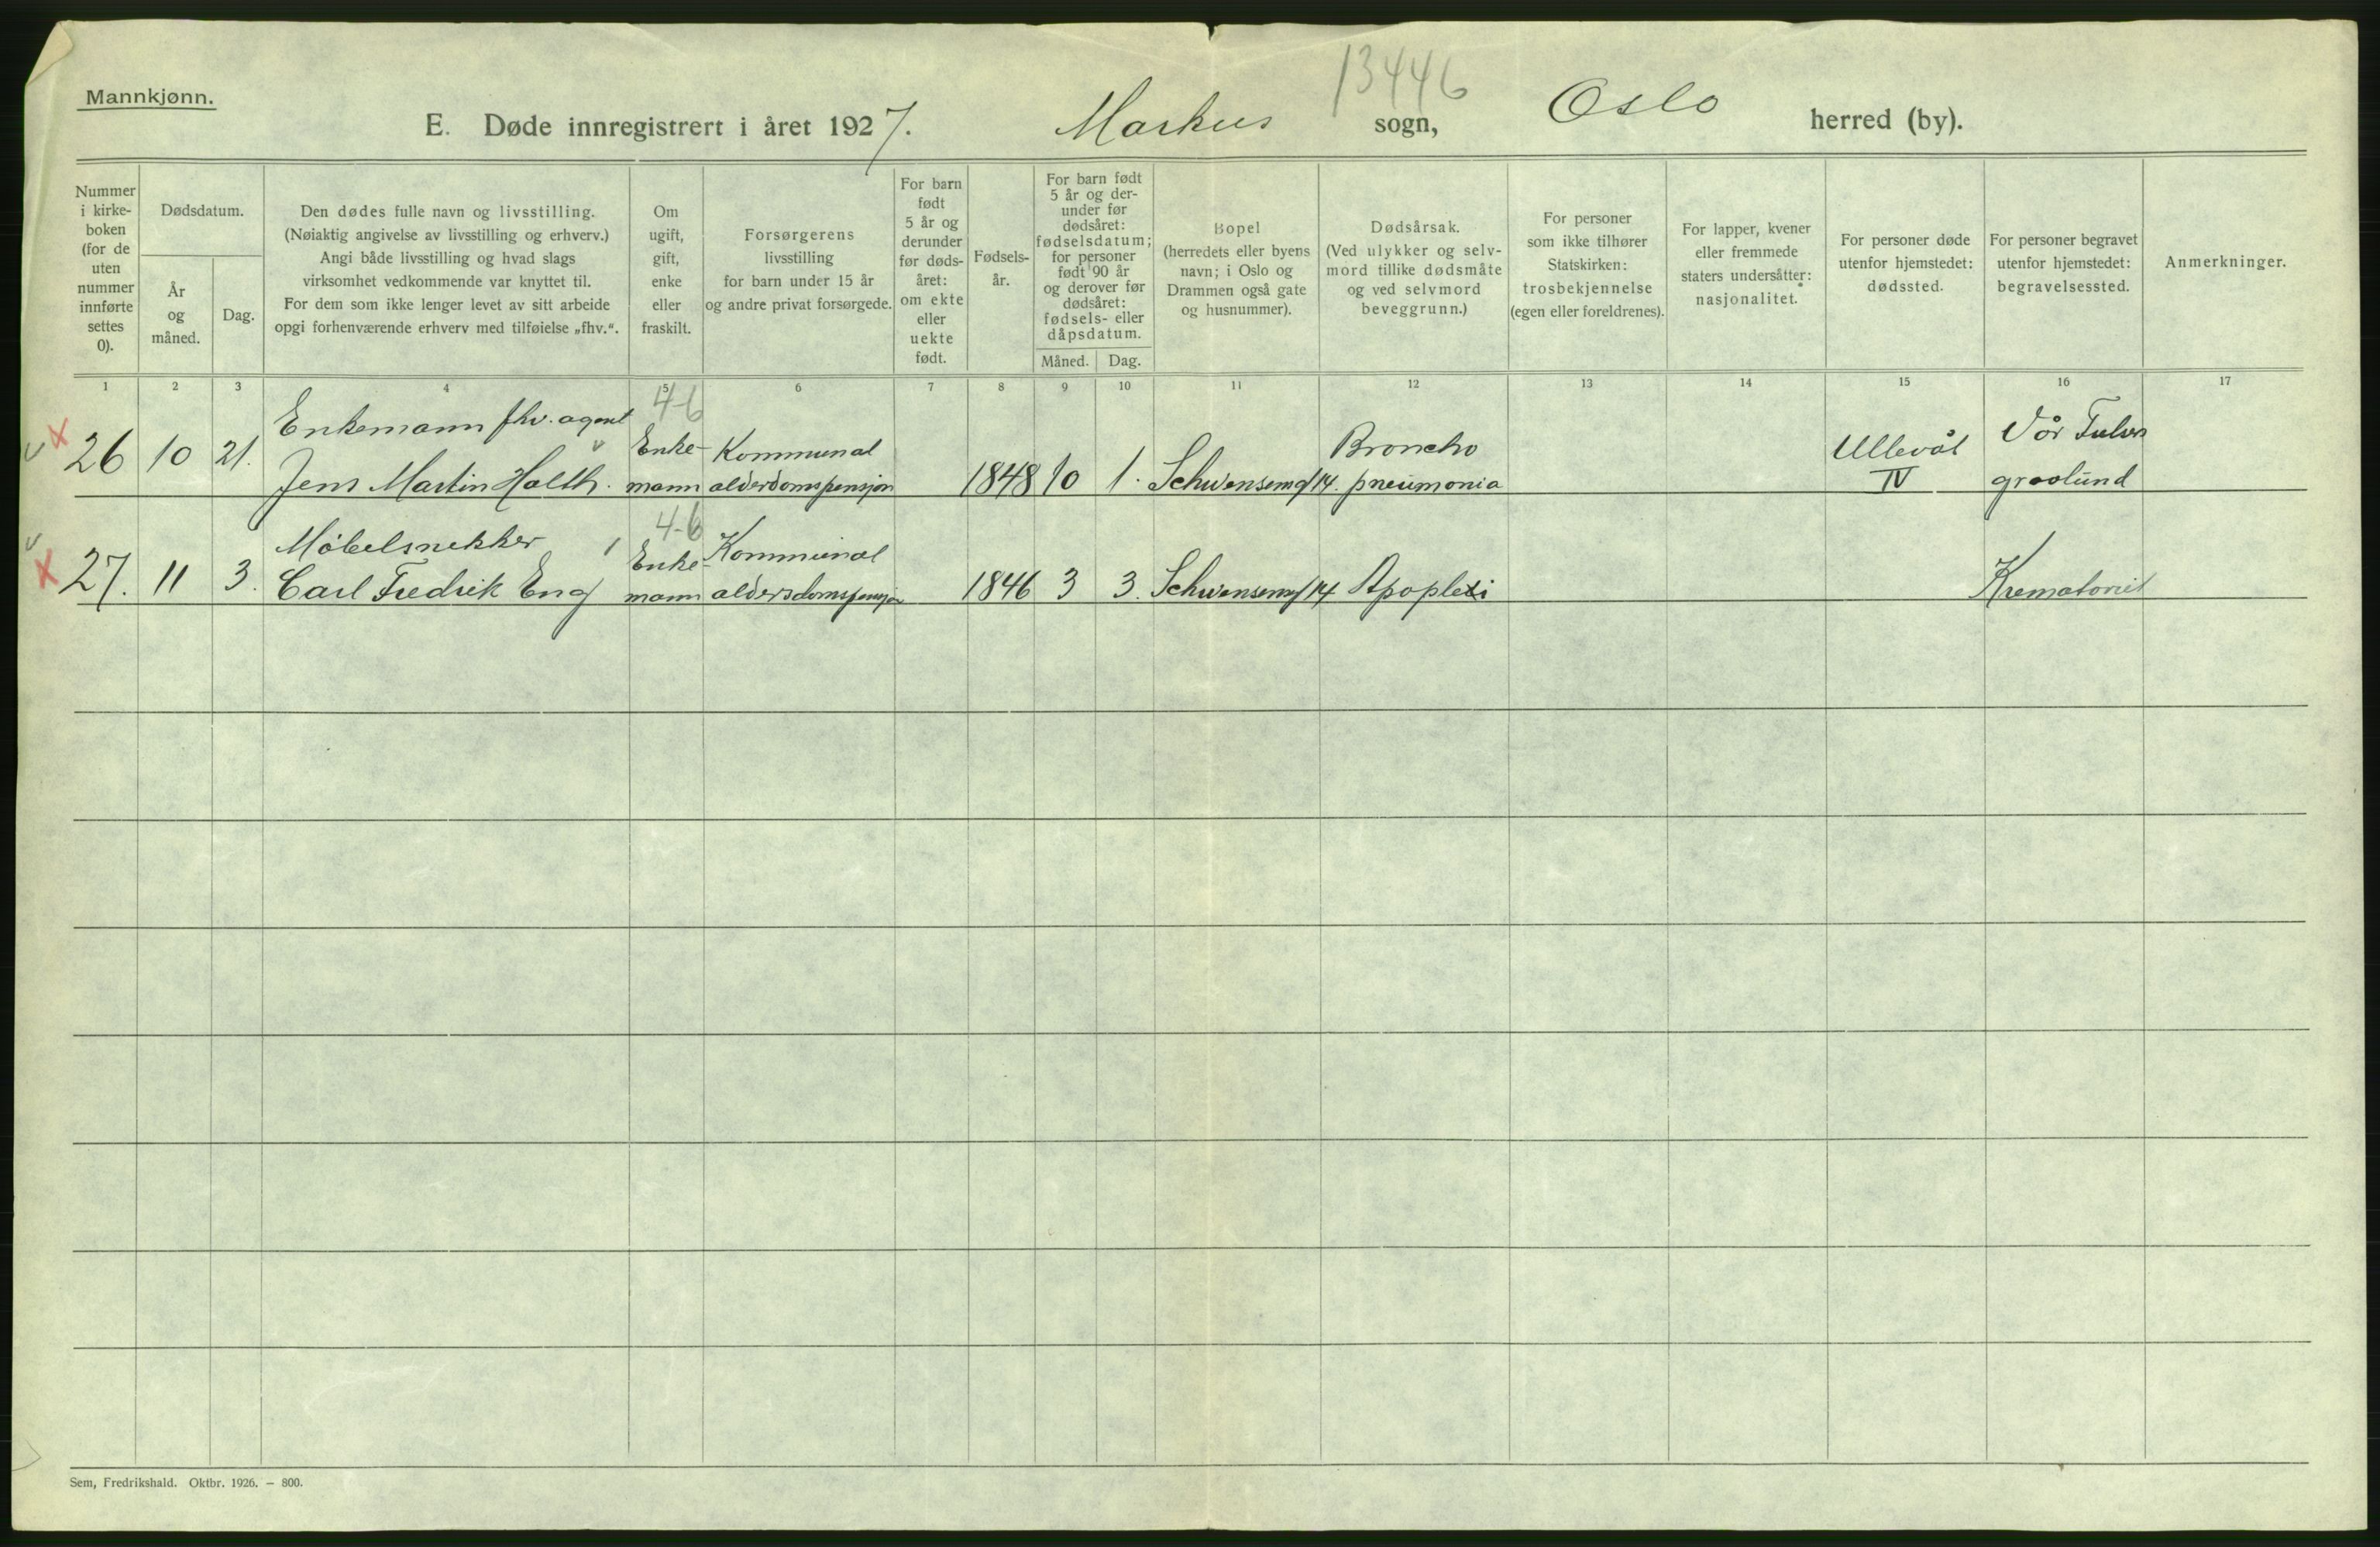 Mannkjønn.
13446
E. Døde innregistrert i året 1927. Markus sogn, Oslo herred (by).
Nummer i kirke-boken (for de uten nummer innførte settes 0).
Dødsdatum.
År og måned.
Dag.
Den dødes fulle navn og livsstilling.
(Nøiaktig angivelse av livsstilling og erhverv.)
Angi både livsstilling og hvad slags
virksomhet vedkommende var knyttet til.
For dem som ikke lenger levet av sitt arbeide
opgi forhenværende erhverv med tilføielse „fhv.“.
Om
ugift,
gift,
enke
eller
fraskilt.
Forsørgerens
livsstilling
for barn under 15 år
og andre privat forsørgede.
For barn
født
5 år og
derunder
før døds-
året:
om ekte
eller
uekte
født.
Fødsels-
år.
For barn født
5 år og der-
under før
dødsåret:
fødselsdatum;
for personer
født 90 år
og derover før
dødsåret:
fødsels- eller
dåpsdatum.
Måned. Dag.
Bopel
(herredets eller byens
navn; i Oslo og
Drammen også gate
og husnummer).
Dødsårsak.
(Ved ulykker og selv-
mord tillike dødsmåte
og ved selvmord
beveggrunn.)
For personer
som ikke tilhører
Statskirken:
trosbekjennelse
(egen eller foreldrenes).
For lapper, kvener
eller fremmede
staters undersåtter:
nasjonalitet.
For personer døde
utenfor hjemstedet:
dødssted.
For personer begravet
utenfor hjemstedet:
begravelsessted.
Anmerkninger.
1 2 3 4 5 6 7 8 9 10 11 12 13 14 15 16 17
26 10 21.
Enkemann fhv. agent
Jens Martin Holth.
4-6
Enke-
mann
Kommunal
alderdomspensjon
1848 10 1.
Schwensensg 14.
Broncho
pneumonia
Ullevål
IV
Vår Frelsers
gravlund
27. 11 3.
Møbelsnekker
Carl Fredrik Eng
4-6
Enke-
mann
Kommunal
aldersdomspensjon
1846 3 3.
Schwensensg 14
Apoplexi
Krematoriet
Sem, Fredrikshald. Oktbr. 1926. — 800.